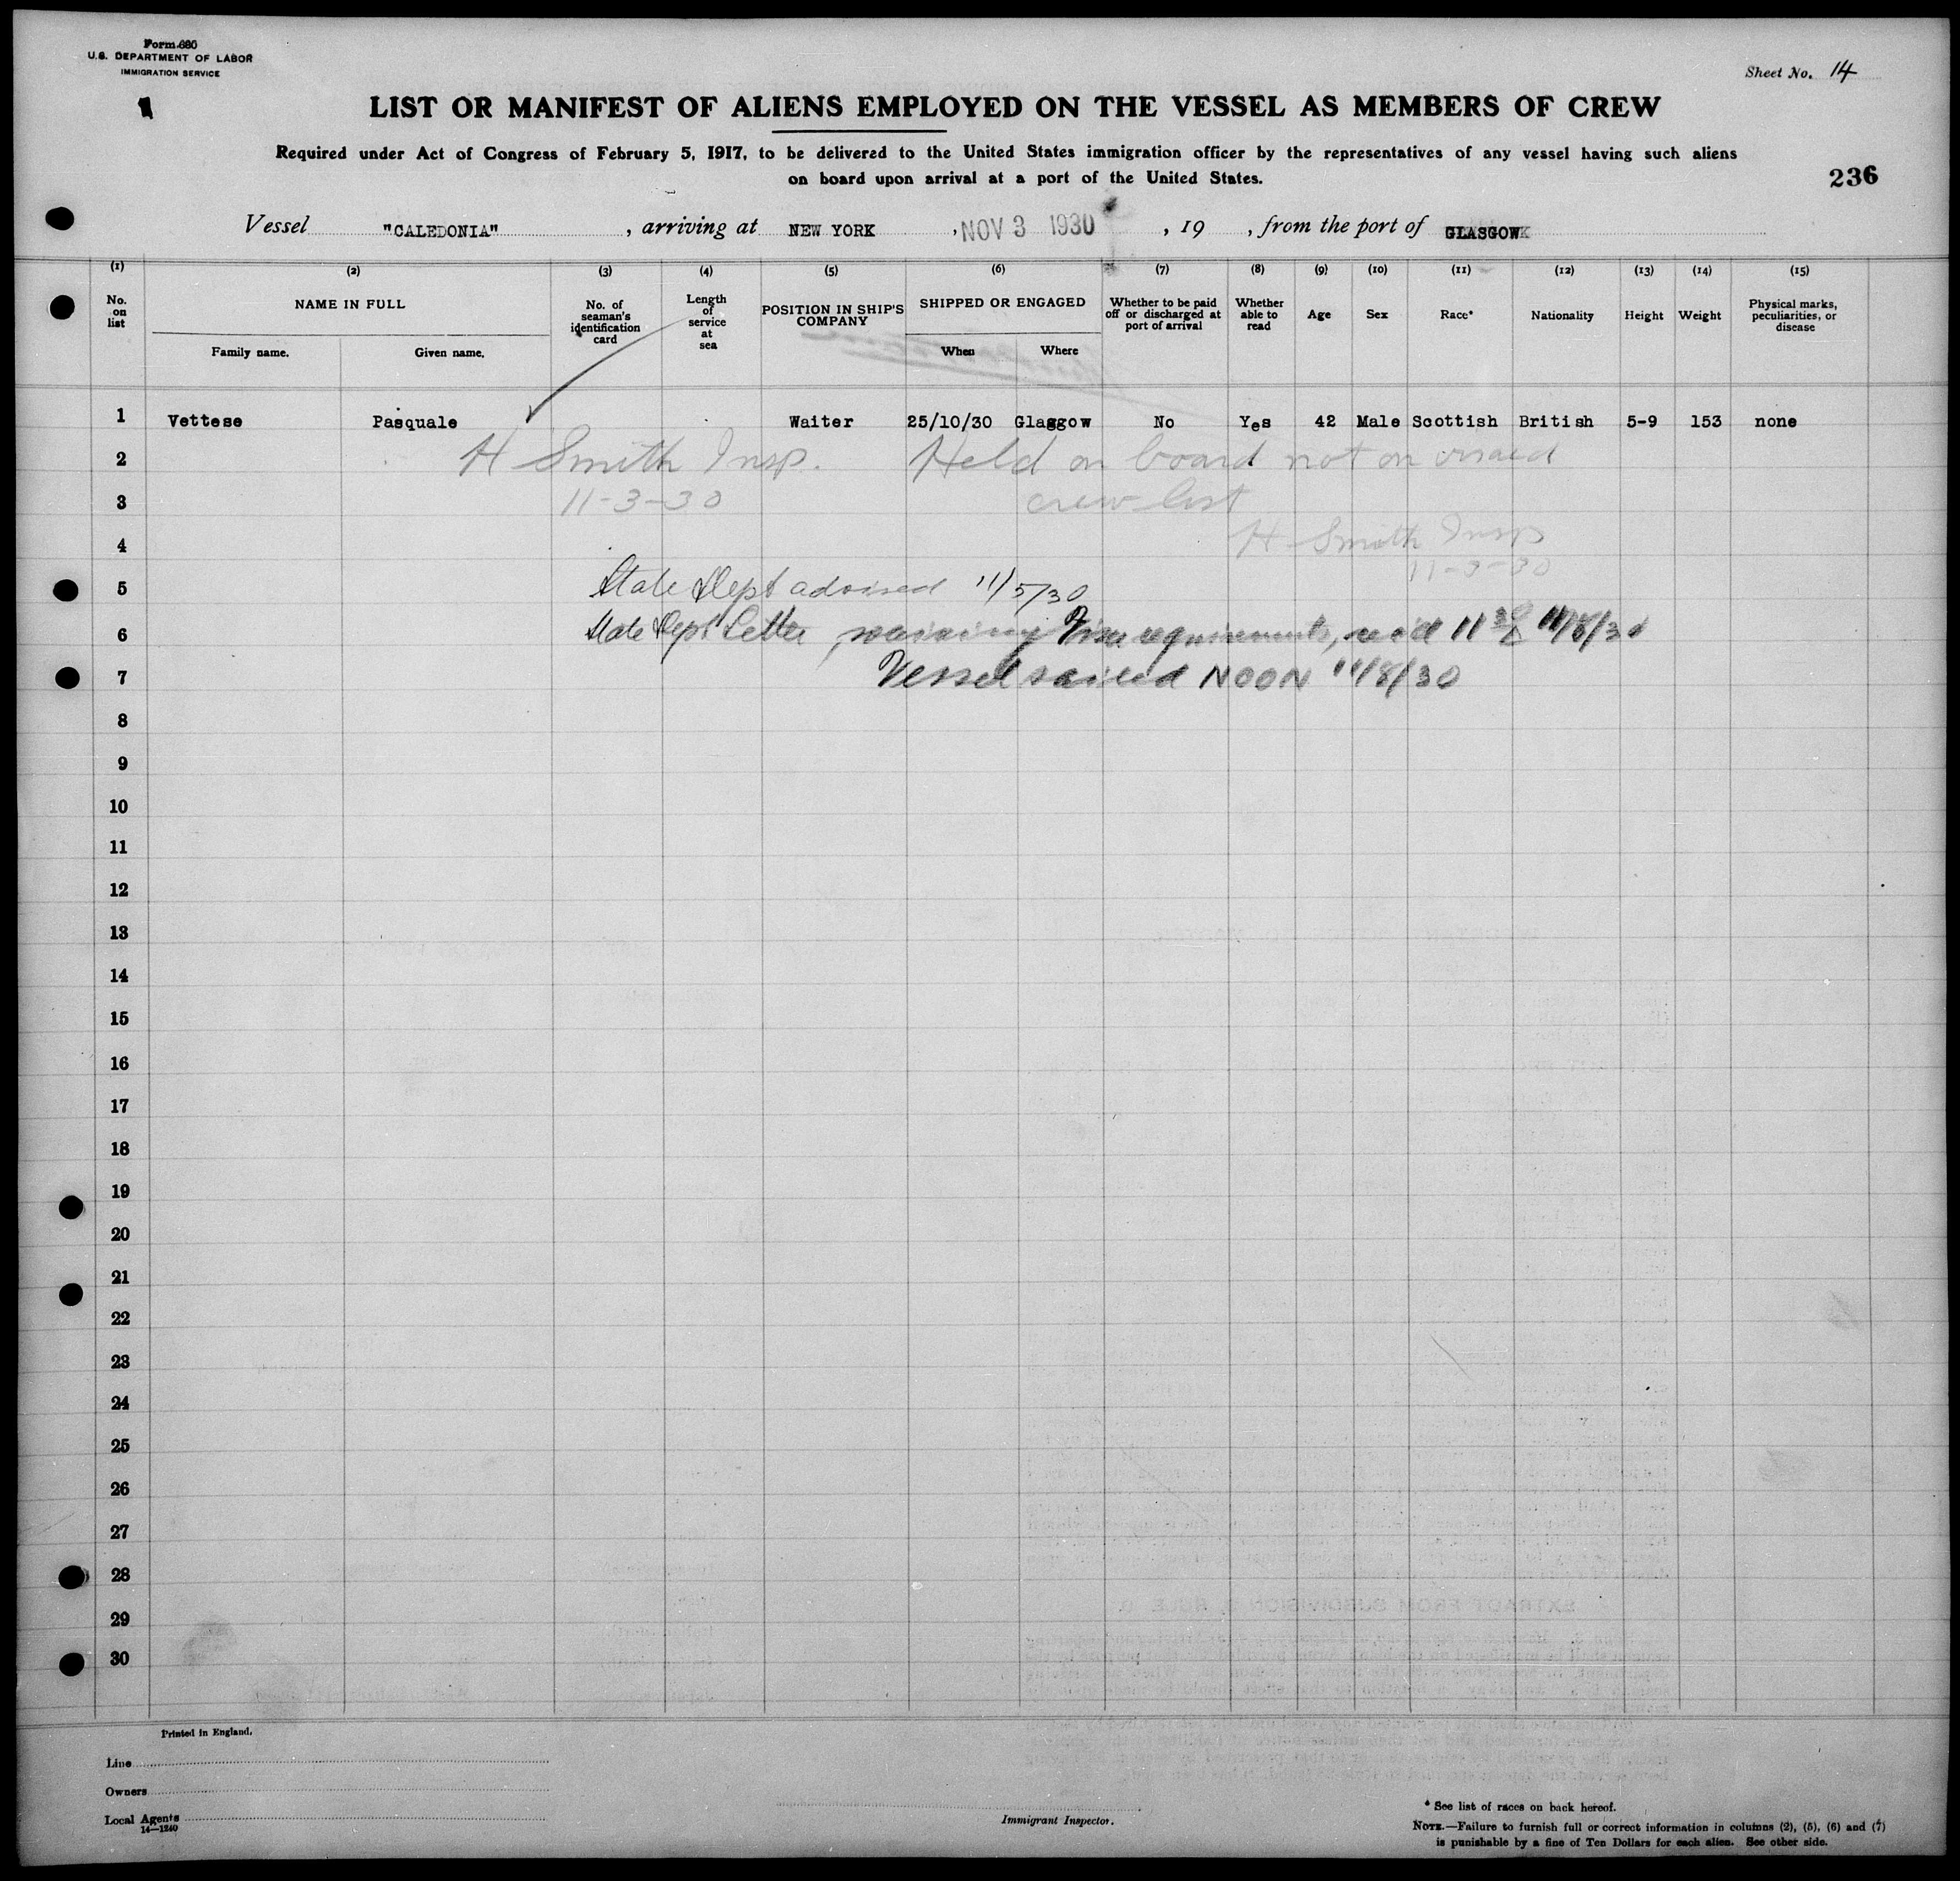 Form 680
U.S. DEPARTMENT OF LABOR
IMMIGRATION SERVICE
Sheet No. 14
LIST OR MANIFEST OF ALIENS EMPLOYED ON THE VESSEL AS MEMBERS OF CREW
Required under Act of Congress of February 5, 1917, to be delivered to the United States immigration officer by the representatives of any vessel having such aliens
on board upon arrival at a port of the United States.
236
Vessel "CALEDONIA", arriving at NEW YORK, NOV 3 1930, 19 , from the port of GLASGOW
(1) (2) (3) (4) (5) (6) (7) (8) (9) (10) (11) (12) (13) (14) (15)
No. on list NAME IN FULL Family name. Given name. No. of seaman's identification card Length of service at sea POSITION IN SHIP'S COMPANY SHIPPED OR ENGAGED When Where Whether to be paid off or discharged at port of arrival Whether able to read Age Sex Race* Nationality Height Weight Physical marks, peculiarities, or disease
1 Vettese Pasquale Waiter 25/10/30 Glasgow No Yes 42 Male Scottish British 5-9 153 none
2 H Smith Insp. Held on board not on visaed
3 11-3-30 crew list
4 H Smith Insp
11-3-30
5 State Dept advised 11/5/30
6 State Dept Letter, waiving Visa requirements, rec'd 11 11/8/30
7 Vessel sailed NOON 11/8/30
8
9
10
11
12
13
14
15
16
17
18
19
20
21
22
23
24
25
26
27
28
29
30
Printed in England.
Line
Owners
Local Agents
14—1240
Immigrant Inspector.
* See list of races on back hereof.
NOTE.—Failure to furnish full or correct information in columns (2), (5), (6) and (7)
is punishable by a fine of Ten Dollars for each alien. See other side.